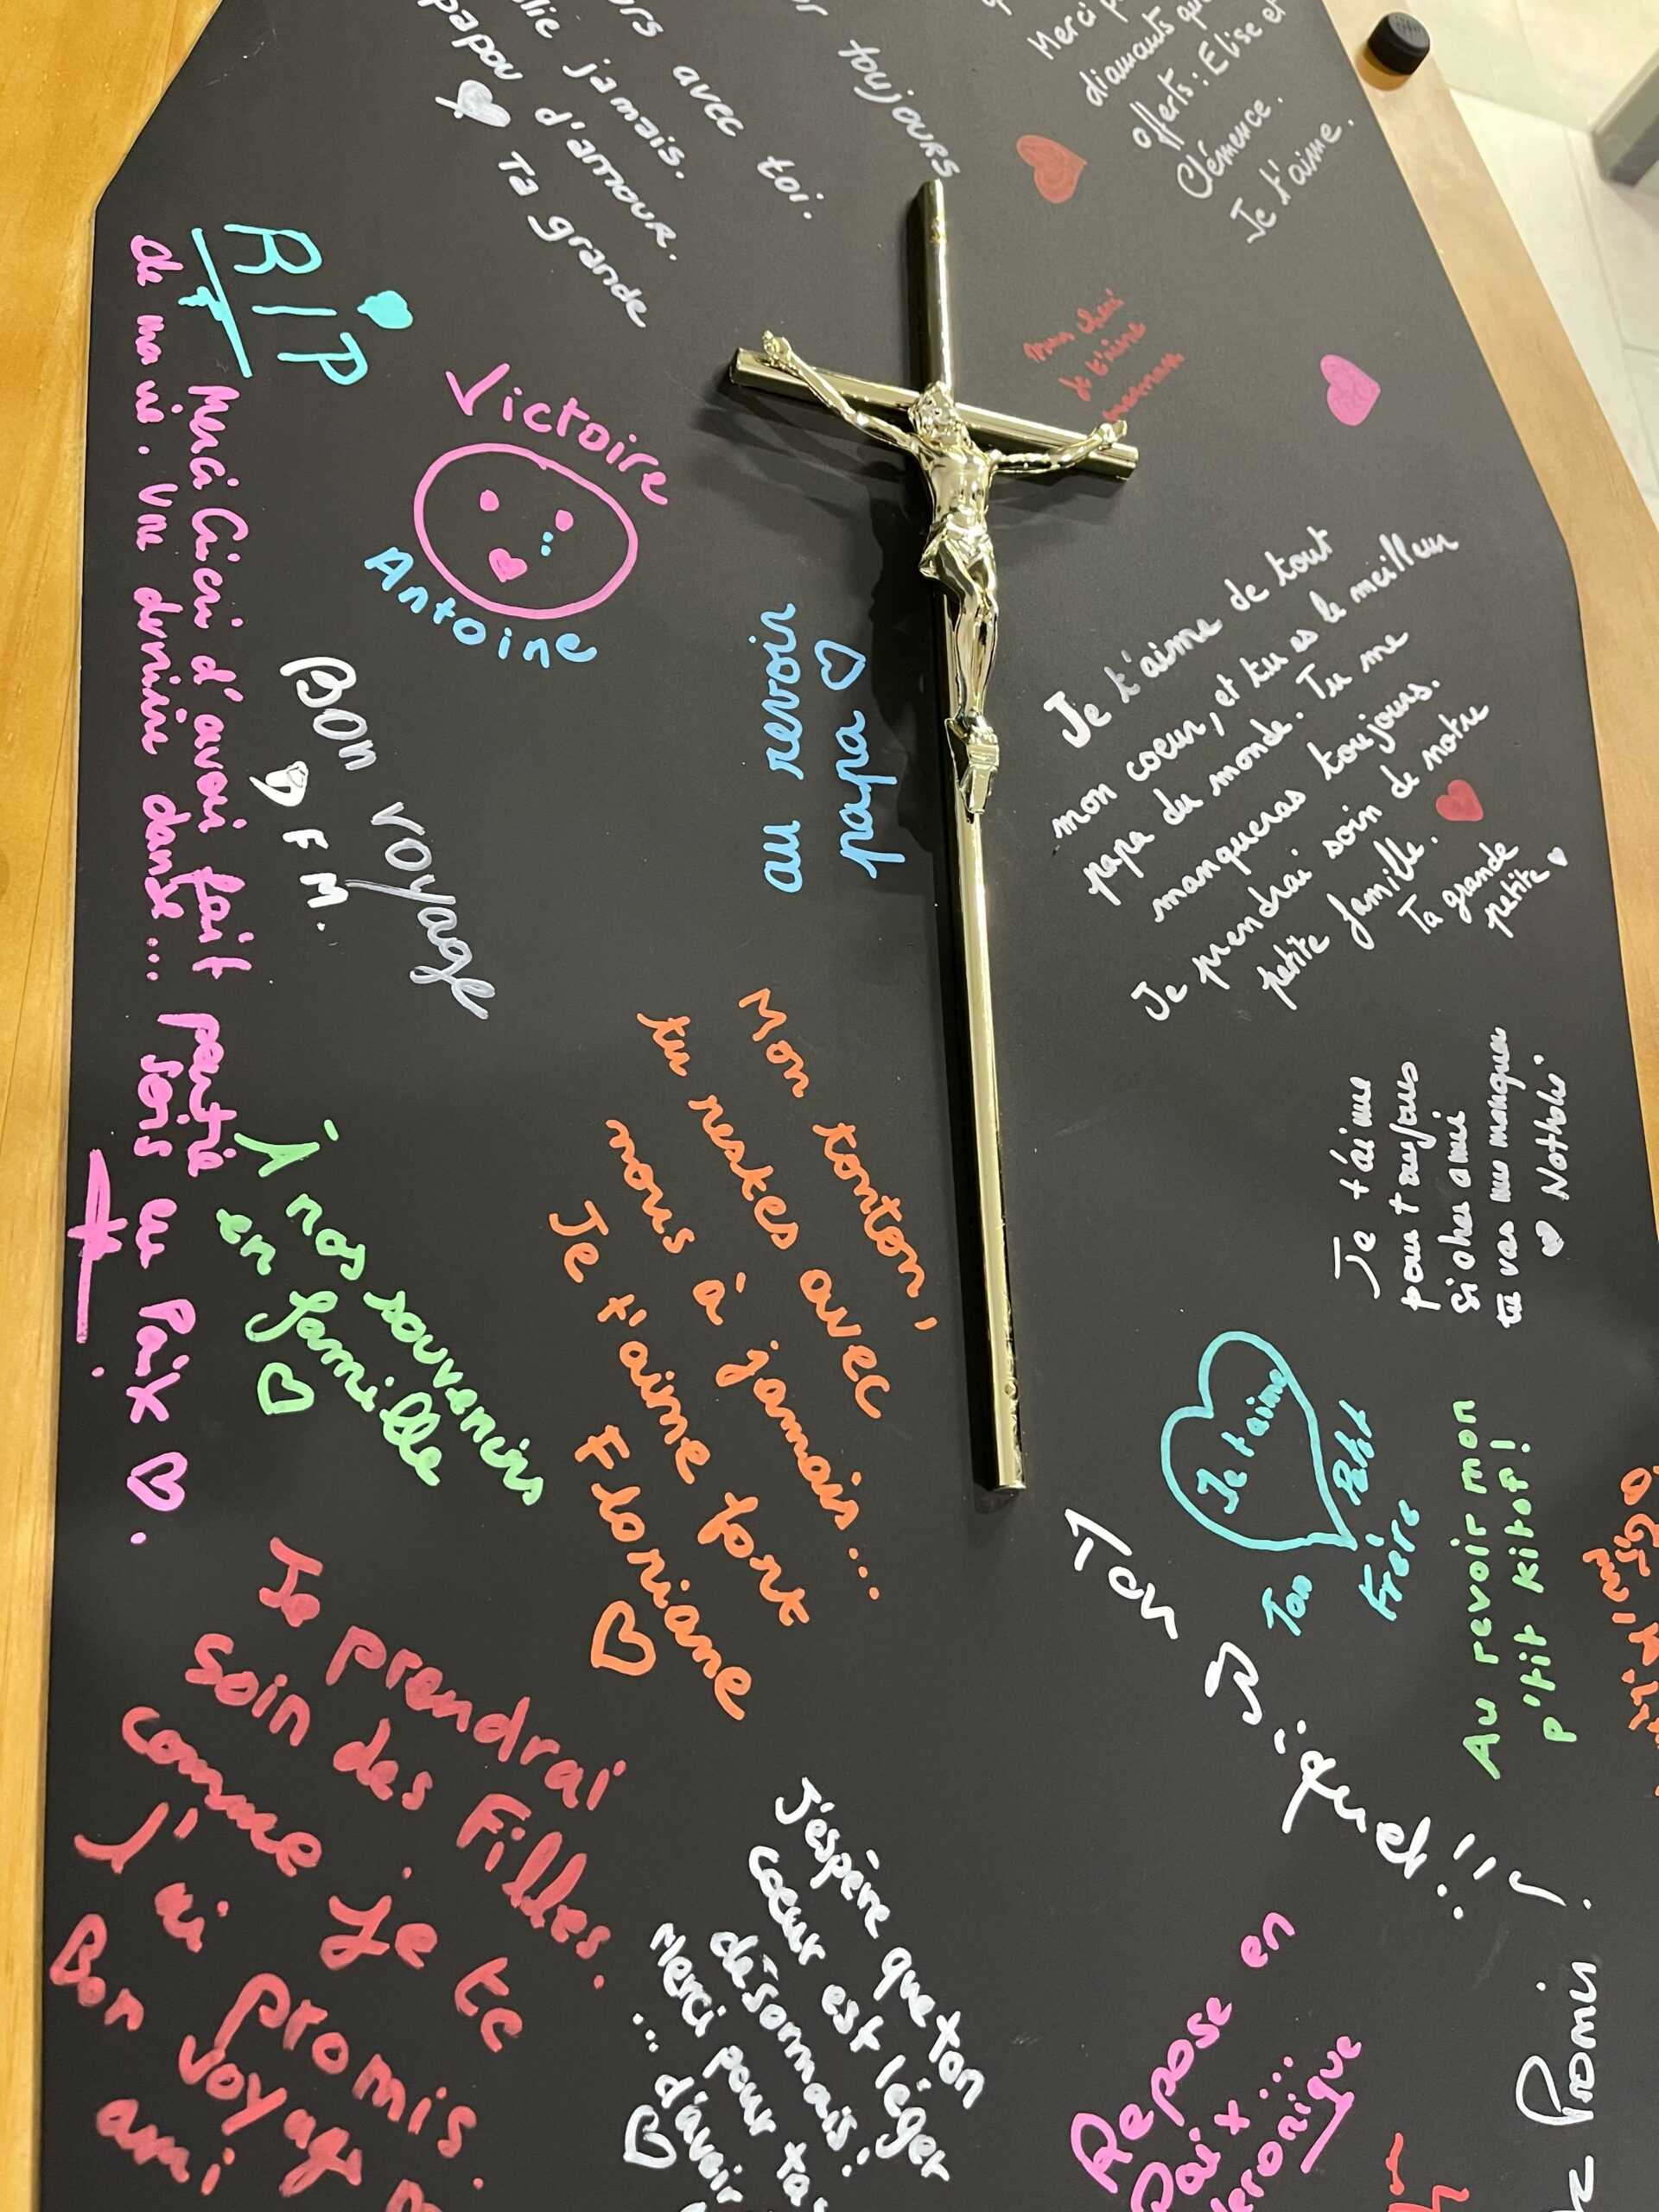 toujours
avec toi.
jamais.
papou d'amour.
Ta grande
Merci
diamants
offerts : Elise et
Clémence.
Je t'aime.
je t'aime
maman
RIP
Victoire
Antoine
Merci d'avoir fait partie
de ma vie. Une dernière danse... Sois en Paix
Bon voyage
F M.
au revoir
papa
Je t'aime de tout
mon coeur, et tu es le meilleur
papa du monde. Tu me
manqueras toujours.
Je prendrai soin de notre
petite famille.
Ta grande
petite
Je t'aime
pour toujours
si cher ami
tu vas me manquer
À nos souvenirs
en famille
Mon tonton,
tu restes avec
nous à jamais...
Je t'aime fort
Floriane
Je t'aime
Ton Petit
Frère
Au revoir mon
p'tit kitof!
Ton
Je prendrai
soin des Filles.
comme je te
l'ai promis.
Bon voyage
ami
J'espère que ton
coeur est léger
désormais!
Merci pour ta
... d'avoir
Repose en
Paix...
Promis